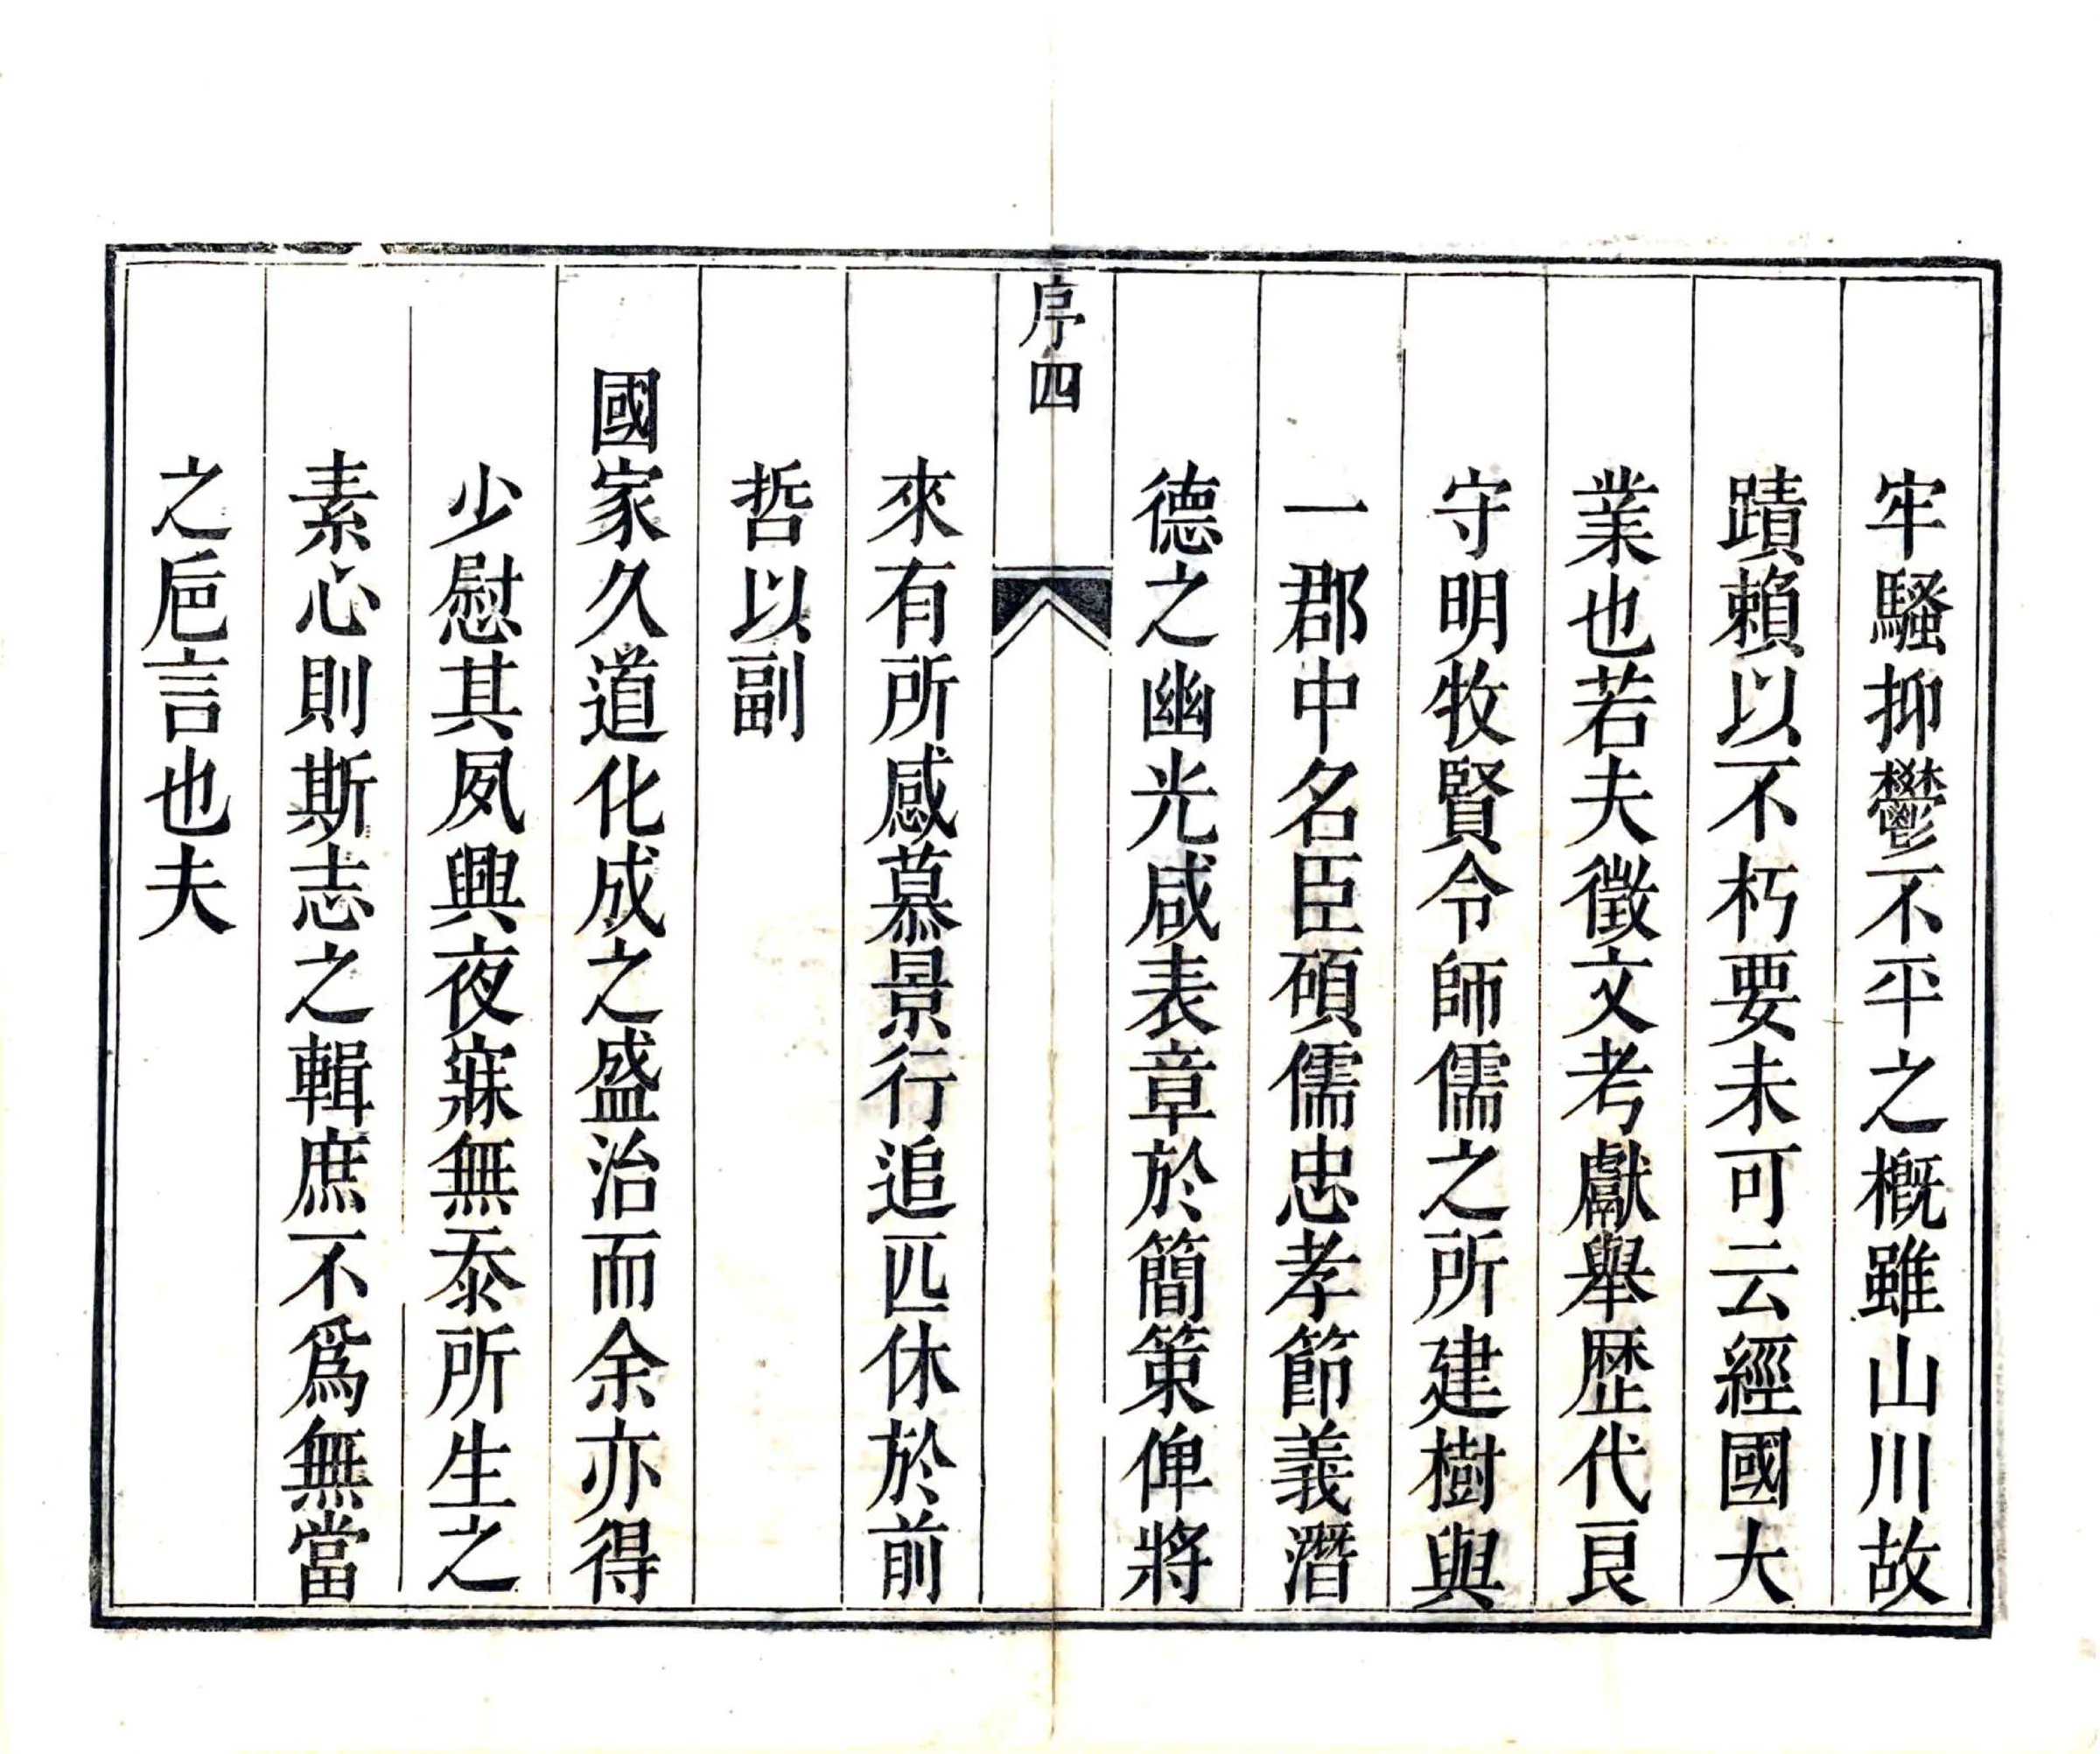 牢騷抑鬱不平之概雖山川故
蹟賴以不朽要未可云經國大
業也若夫徵文考獻舉歷代良
守明牧賢令師儒之所建樹與
一郡中名臣碩儒忠孝節義潛
德之幽光咸表章於簡策俾將
序四
來有所感慕景行追匹休於前
哲以副
國家久道化成之盛治而余亦得
少慰其夙興夜寐無忝所生之
素心則斯志之輯庶不爲無當
之巵言也夫